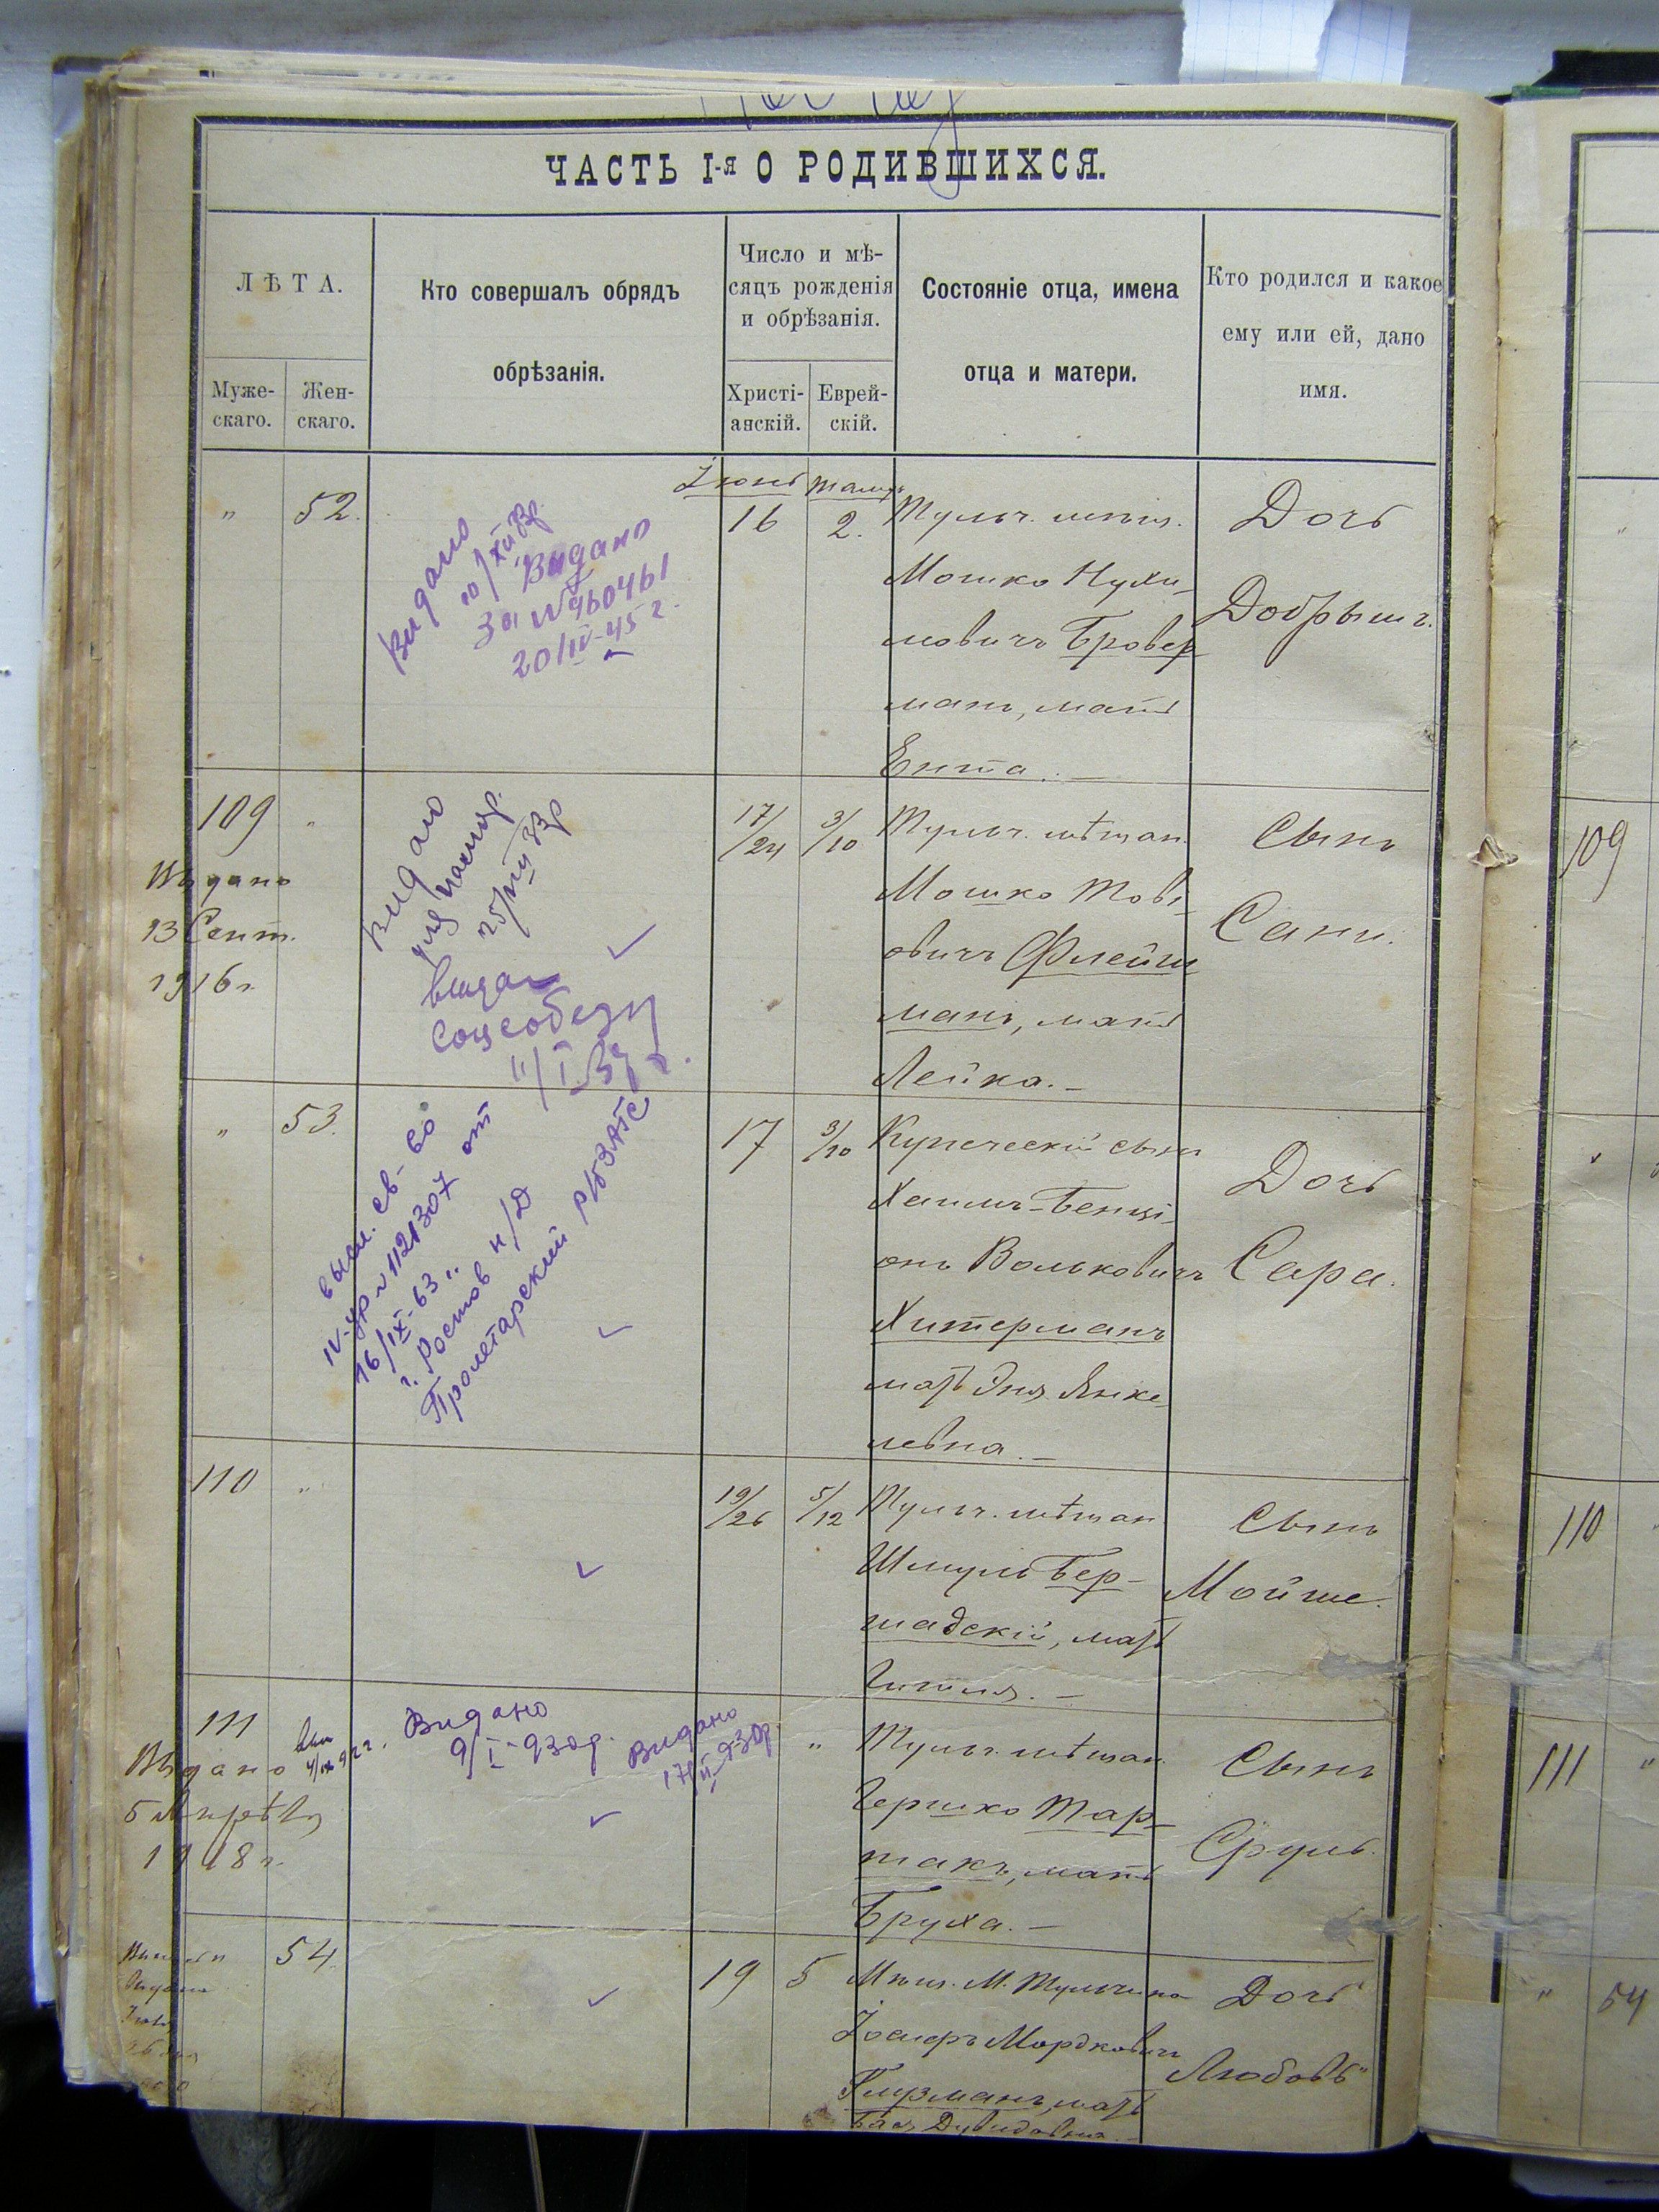 ЧАСТЬ I-я О РОДИВШИХСЯ.
ЛѢТА.
Муже-
скаго.
Жен-
скаго.
Кто совершалъ обрядъ
обрѣзанія.
Число и мѣ-
сяцъ рожденія
и обрѣзанія.
Христі-
анскій.
Еврей-
скій.
Состояніе отца, имена
отца и матери.
Кто родился и какое
ему или ей, дано
имя.
" 52.
Видано
10/XII 33р.
Видано
за № 460461
20/IV-45 г.
Іюнь
16 2.
Тульч. мѣщ.
Мошко Нухи-
мовичъ Бровер
манъ, мать
Ента.
Дочь
109 "
Выдано
13 Сент.
1916 г.
Видано
для паспор.
33р
Соцсобезу
17/24 3/10
Тульч. мѣщан.
Мошко Товi-
овичъ Флейш
манъ, мать
Лейка.
Сынъ
" 53.
высл. св-во
IV-УР № 112307 от
16/IX-63 г.
г. Ростов н/Д
Пролетарский р/бЗАГС
17 3/10
Купеческій сынъ
Хаимъ-Бенці-
онъ Вольковичъ
Хитерманъ
мать Эня Янке
левна.
Дочь
Сара.
110 "
19/26 5/12
Тульч. мѣщан
Шмуль Бер-
шадскій, мать
Гитля.
Сынъ
Мойше.
111
Выдано
5 Апрѣля
1918 г.
Видано
9/I-930р.
Видано
17/II-930р
"
Тульч. мѣщан.
Гершко Тар-
такъ, мать
Бруха.
Сынъ
Сруль.
54.
19 5
Мѣщ. М. Тульчина
Іосифъ Мордковичъ
Глузманъ, мать
Бася Дувидовна.
Дочь
Любовь"
109
110
111 "
" 54